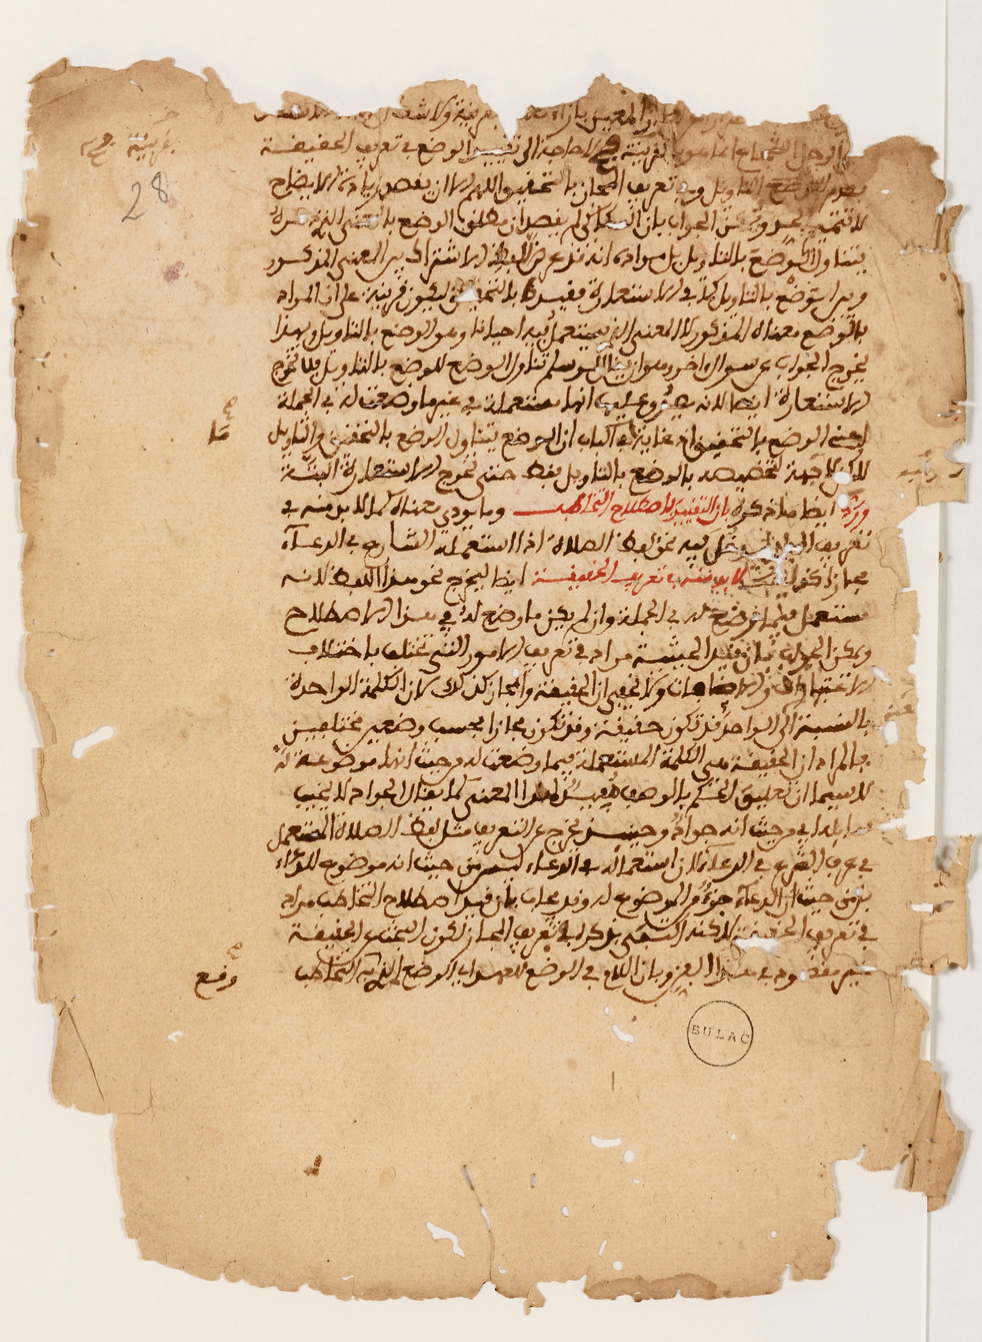 الرجل الشجاع إنما هو بالقرينة فح لا حاجة إلى تقييد الوضع في تعريف الحقيقة
بعدم التأويل وفي تعريف المجاز بالتحقيق اللهم إلا ان يقصد زيادة الايضاح
لا تتميم الحد ويمكن الجواب بان السكاكي لم يقصد ان مطلق الوضع بالمعنى الذي ذكره
يتناول الوضع بالتاويل بل مراده انه قد عرض للفظ الاشتراك بين المعنى المذكور
وبين الوضع بالتاويل كما في الاستعارة فقيده بالتحقيق ليكون قرينة على ان المراد
بالوضع معناه المذكور لا المعنى الذي يستعمل فيه احيانا وهو الوضع بالتاويل وبهذا
يخرج الجواب عن سؤال اخر وهو ان يقال لو سلم تناول الوضع للوضع بالتاويل فلا تخرج
الاستعارة ايضا لانه يصدق عليها انها مستعملة في غير ما وضعت له في الجملة
اعنى الوضع بالتحقيق اذ غاية ما في الباب ان الوضع يتناول الوضع بالتحقيق والتاويل
لاكن لا جهة لتخصيصه بالوضع بالتاويل فقط حتى تخرج الاستعارة البتة
ورد ايضا ما ذكره بان التقييد باصطلاح التخاطب وما يودي معناه كما لا بد منه في
تعريف المجاز ليدخل فيه نحو لفظ الصلاة اذا استعمله الشارع في الدعاء
مجازا كذلك لا بد منه في تعريف الحقيقة ايضا ليخرج نحو هذا اللفظ لانه
مستعمل فيما وضع له في الجملة وان لم يكن ما وضع له في هذا الاصطلاح
ويمكن الجواب بان قيد الحيثية مراد في تعريف الامور التي تختلف باختلاف
الاعتبارات والاضافات ولا يخفى ان الحقيقة والمجاز كذلك لان الكلمة الواحدة
بالنسبة الى الواحد قد تكون حقيقة وقد تكون مجازا بحسب وضعين مختلفين
فالمراد ان الحقيقة هي الكلمة المستعملة فيما وضعت له من حيث انها موضوعة له
لا سيما ان تعليق الحكم بالوصف مفيد لهذا المعنى كما يقال الجواد لا يخيب
سايله اي من حيث انه جواد وحينئذ يخرج عن التعريف مثل لفظ الصلاة المستعمل
في عرف الشرع في الدعاء لان استعماله في الدعاء ليس من حيث انه موضوع للدعاء
بل من حيث ان الدعاء جزء من الموضوع له وقد يجاب بان قيد اصطلاح التخاطب مراد
في تعريف الحقيقة لاكنه اكتفى بذكره في تعريف المجاز لكون البحث عن الحقيقة
غير مقصود في هذا الفن وبان اللام في الوضع للعهد اي الوضع الذي به التخاطب
وقع
28
BULAC